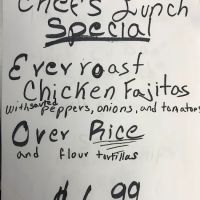 Chef's Lunch
Special
Everroast
Chicken Fajitas
with sauteed peppers, onions, and tomatoes
Over Rice
and flour tortillas
.99